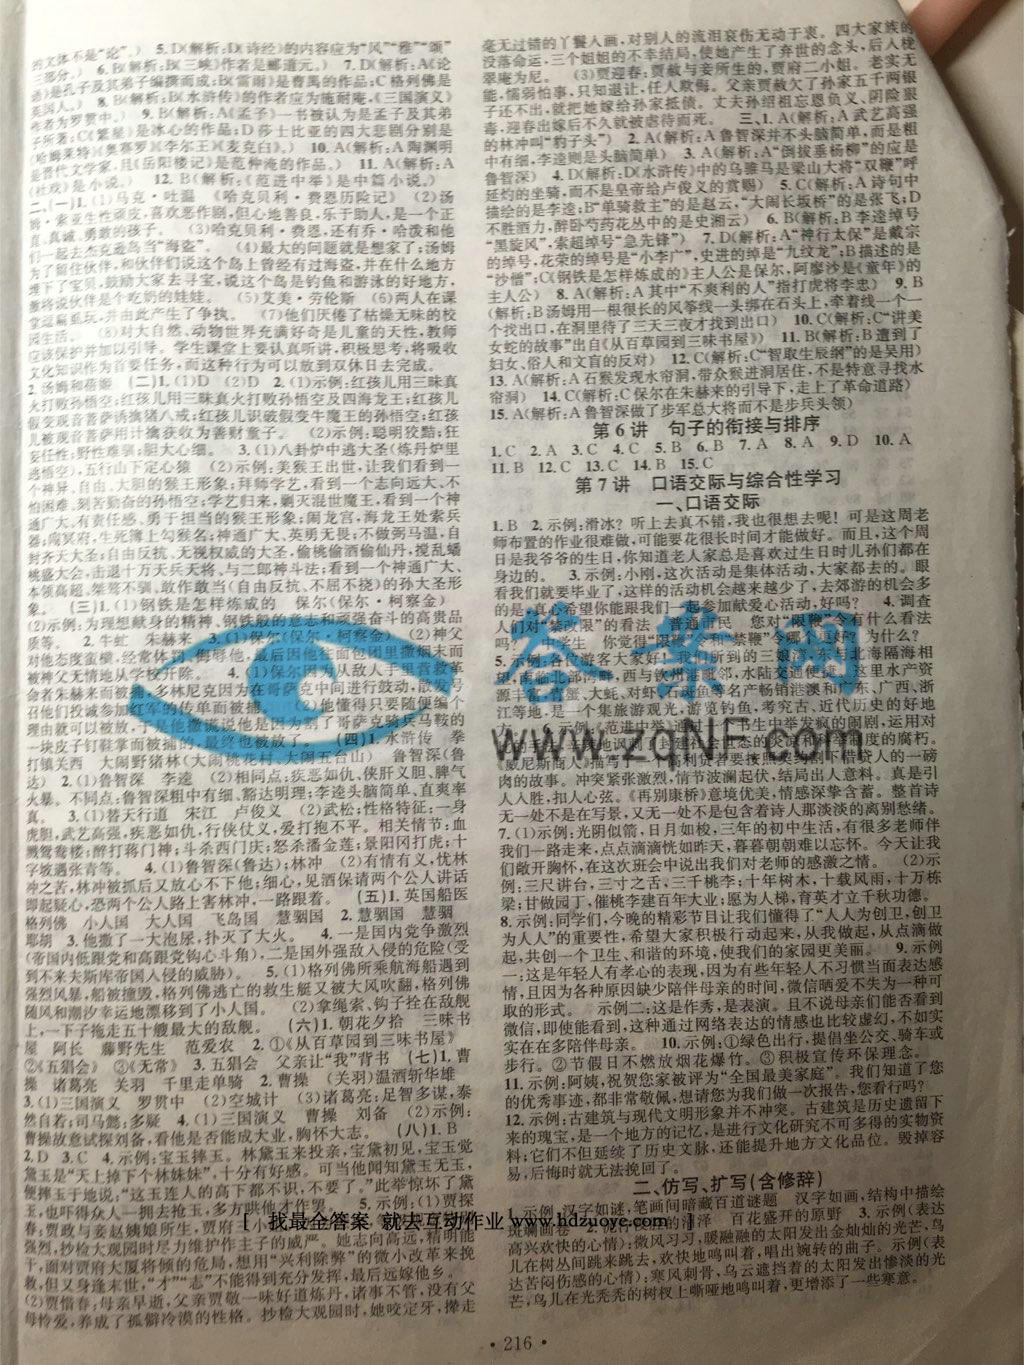 的文体不是“论”。) 5.D(解析:D《诗经》的内容应为“风”“雅”“颂”
三部分。) 6.B(解析:B《三峡》作者是郦道元。) 7.D(解析:A《论
语》是孔子及其弟子编撰而成;B《雷雨》是曹禺的作品;C格列佛是
英国人。) 8.B(解析:B《水浒传》的作者应为施耐庵,《三国演义》
作者为罗贯中。) 9.B(解析:A《孟子》一书被认为是孟子及其弟
子所著;C《繁星》是冰心的作品;D莎士比亚的四大悲剧分别是
《哈姆莱特》《奥赛罗》《李尔王》《麦克白》。) 10.A(解析:A陶渊明
是晋代文学家,且《岳阳楼记》是范仲淹的作品。) 11.A(解析:A
《社戏》是小说。) 12.B(解析:《范进中举》是中篇小说。)
二、(一)1.(1)马克·吐温 《哈克贝利·费恩历险记》 (2)汤
姆·索亚生性顽皮,喜欢恶作剧,但心地善良,乐于助人,是一个正
直、真诚、勇敢的孩子。 (3)哈克贝利·费恩,还有乔·哈泼和他
们一起去杰克逊岛当“海盗”。 (4)最大的问题就是想家了;汤姆
为了留住伙伴,和伙伴们说这个岛上曾经有过海盗,并在什么地方
埋下了宝贝,鼓励大家去寻宝,说这个岛是钓鱼和游泳的好地方,
激将说伙伴是个吃奶的娃娃。 (5)艾美·劳伦斯 (6)两人在课
堂逗扁虱玩,并由此产生了争执。 (7)他们厌倦了枯燥无味的校
园生活。 (8)对大自然、动物世界充满好奇是儿童的天性,教师
应该保护并加以引导。学生课堂上要认真听讲,积极思考;将吸收
文化知识作为首要任务,而这种行为可以放到双休日去完成。
2.汤姆和蓓姬 (二)1.(1)D (2)D 2.(1)示例:红孩儿用三昧真
火打败孙悟空:红孩儿用三昧真火打败孙悟空及四海龙王;红孩儿
假变观音菩萨诱擒猪八戒;红孩儿识破假变牛魔王的孙悟空;红孩
儿被观音菩萨用计擒获收为善财童子。 (2)示例:聪明狡黠;狂
妄任性;野性难驯;胆大心细。 3.(1)八卦炉中逃大圣(炼丹炉里
逃悟空),五行山下定心猿 (2)示例:美猴王出世,让我们看到一
个神异、自由、大胆的猴王形象;拜师学艺,看到一个志向远大、不
怕困难、刻苦勤奋的孙悟空;学艺归来,剿灭混世魔王,看到一个神
通广大、有责任感、勇于担当的猴王形象;闹龙宫,海龙王处索兵
器;闯冥府,生死簿上勾猴名;神通广大、英勇无畏;不做弼马温,自
封齐天大圣;自由反抗、无视权威的大圣,偷桃偷酒偷仙丹,搅乱蟠
桃盛大会,击退十万天兵天将、与二郎神斗法;看到一个神通广大、
本领高超、桀骜不驯、敢作敢当(自由反抗、不屈不挠)的孙大圣形
象。 (三)1.(1)钢铁是怎样炼成的 保尔(保尔·柯察金)
(2)示例:为理想献身的精神、钢铁般的意志和顽强奋斗的高贵品
质等。 2.牛虻 朱赫来 3.(1)保尔(保尔·柯察金) (2)神父
对他态度蛮横,经常体罚、侮辱他,最后因他在面包团里撒烟末而
被神父无情地从学校开除。 4.(1)保尔因为从敌人手里营救革
命者朱赫来而被捕,多林尼克因为在哥萨克中间进行鼓动,散发号
召他们投诚参加红军的传单而被捕 他懂得只要随便编个
理由就可以被放,于是他撒谎说他是因为割了哥萨克骑兵马鞍的
一块皮子钉鞋掌而被捕的,最终也被放了。 (四)1.水浒传 拳
打镇关西 大闹野猪林(大闹桃花村、大闹五台山) 鲁智深(鲁
达) 2.(1)鲁智深 李逵 (2)相同点:疾恶如仇、侠肝义胆、脾气
火暴。不同点:鲁智深粗中有细、豁达明理;李逵头脑简单、直爽率
真。 3.(1)替天行道 宋江 卢俊义 (2)武松;性格特征:一身
虎胆,武艺高强,疾恶如仇,行侠仗义,爱打抱不平。相关情节:血
溅鸳鸯楼;醉打蒋门神;斗杀西门庆;怒杀潘金莲;景阳冈打虎;十
字坡遇张青等。 4.(1)鲁智深(鲁达);林冲 (2)有情有义,忧林
冲之苦,林冲被抓后又放心不下他;细心,见酒保请两个公人讲话
即起疑心,恐两个公人路上害林冲,一路跟着。 (五)1.英国船医
格列佛 小人国 大人国 飞岛国 慧骃国 2.慧骃国 慧骃
耶胡 3.他撒了一大泡尿,扑灭了大火。 4.一是国内党争激烈
(帝国内低跟党和高跟党钩心斗角),二是国外强敌入侵的危险(受
到不来夫斯库帝国入侵的威胁)。 5.(1)格列佛所乘航海船遇到
强烈风暴,船被撞毁,格列佛逃亡的救生艇又被大风吹翻,格列佛
随风和潮汐幸运地漂移到了小人国。 (2)拿绳索、钩子拴在敌舰
上,一下子拖走五十艘最大的敌舰。 (六)1.朝花夕拾 三味书
屋 阿长 藤野先生 范爱农 2.①《从百草园到三味书屋》
②《五猖会》 ③《无常》 3.五猖会 父亲让“我”背书 (七)1.曹
操 诸葛亮 关羽 千里走单骑 2.曹操 (关羽)温酒斩华雄
3.(1)三国演义 罗贯中 (2)空城计 (3)诸葛亮:足智多谋,泰
然自若;司马懿:多疑 4.(1)三国演义 曹操 刘备 (2)示例:
曹操故意试探刘备,看他是否能成大业,胸怀大志。 (八)1.B
2.D 3.C 4.示例:宝玉摔玉。林黛玉来投亲,宝黛初见,宝玉觉
黛玉是“天上掉下个林妹妹”,十分有好感。可当他闻知黛玉无玉,
便摔玉于地说:“这玉连人的高下都不识,不要了。”此举惊坏了黛
玉,也吓得众人一拥去抢玉,多方哄他才作罢。 5.示例:(1)贾探
春:贾政与妾赵姨娘所生,贾府三小
强烈,抄检大观园时尽力维护作主子的威严。她志向高远,精明能
干,面对贾府大厦将倾的危局,想用“兴利除弊”的微小改革来挽
救,但又身逢末世,“才”“志”不能得到充分发挥,最后远嫁他乡。
(2)贾惜春:母亲早逝,父亲贾敬一味好道炼丹,诸事不管,没有父
母怜爱,养成了孤僻冷漠的性格。抄检大观园时,她咬定牙,撵走
毫无过错的丫鬟入画,对别人的流泪哀伤无动于衷。四大家族的
没落命运,三个姐姐的不幸结局,使她产生了弃世的念头,后入栊
翠庵为尼。 (3)贾迎春:贾赦与妾所生的,贾府二小姐。老实无
能,懦弱怕事,只知退让,任人欺侮。父亲贾赦欠了孙家五千两银
子还不出,就把她嫁给孙家抵债。丈夫孙绍祖忘恩负义、阴险狠
毒,迎春出嫁后不久就被虐待而死。 三、1.A(解析:A武艺高强
的林冲叫“豹子头”) 2.A(解析:A鲁智深并不头脑简单,而是粗
中有细,李逵则是头脑简单) 3.A(解析:A“倒拔垂杨柳”的应是
鲁智深) 4.D(解析:D《水浒传》中的乌骓马是梁山大将“双鞭”呼
延灼的坐骑,而不是皇帝给卢俊义的赏赐) 5.C(解析:A诗句中
描绘的是李逵;B“单骑救主”的是赵云,“大闹长坂桥”的是张飞;D
不胜酒力,醉卧芍药花丛中的是史湘云) 6.B(解析:B李逵绰号
“黑旋风”,索超绰号“急先锋”) 7.D(解析:A“神行太保”是戴宗
的绰号,花荣的绰号是“小李广”,史进的绰是“九纹龙”;B描述的是
“沙僧”;C《钢铁是怎样炼成的》主人公是保尔,阿廖沙是《童年》的
主人公) 8.A(解析:A其中“不爽利的人”指打虎将李忠) 9.B
(解析:B汤姆用一根很长的风筝线一头绑在石头上,牵着线一个一
个找出口,在洞里待了三天三夜才找到出口) 10.C(解析:C“讲美
女蛇的故事”出自《从百草园到三味书屋》) 11.B(解析:B遭到了
妇女、俗人和文盲的反对) 12.C(解析:C“智取生辰纲”的是吴用)
13.A(解析:A石猴发现水帘洞,带众猴进洞居住,不是特意寻找水
帘洞) 14.C(解析:C保尔在朱赫来的引导下,走上了革命道路)
15.A(解析:A鲁智深做了步军总大将而不是步兵头领)
第6讲 句子的衔接与排序
1.C 2.A 3.C 4.A 5.B 6.B 7.A 8.A 9.D 10.A
11.B 12.C 13.C 14.B 15.C
第7讲 口语交际与综合性学习
一、口语交际
1.B 2.示例:滑冰?听上去真不错,我也很想去呢!可是这周老
师布置的作业很难做,可能要花很长时间才能做好。而且,这个周
日是我爷爷的生日,你知道老人家总是喜欢过生日时儿孙们都在
身边的。 3.示例:小刚,这次活动是集体活动,大家都去的。眼
看我们就要毕业了,这样的活动机会越来越少了,去郊游的机会多
的是,真心希望你能跟我们一起参加献爱心活动,好吗? 4.调查
人们对“禁改限”的看法 普通市民 您对“限鞭”令有什么看法
吗? 中学生 你觉得“限鞭”令和“禁鞭”令哪个更好?为什么?
5.示例:各位游客大家好!我们所到的三娘湾,东与北海隔海相
望,南临北部湾畔,西与钦州港毗邻,水陆交通便捷。这里水产资
源丰富,青蟹、大蚝、对虾、石斑鱼等名产畅销港澳和广东、广西、浙
江等地,是一个集旅游观光,游览钓鱼,考究古、近代历史的好地
6.示例:《范进中举》通过 书生中举发疯的闹剧,运用对
讽刺了封建社会世态的炎凉和科举制度的腐朽。
《威尼斯商人》描写了一 高利贷者要按照契约割下借贷人的一磅
肉的故事。冲突紧张激烈,情节波澜起伏,结局出人意料。真是引
人入胜,扣人心弦。《再别康桥》意境优美,情感深挚含蓄。整首诗
无一处不是在写景,又无一处不是包含着诗人那淡淡的离别愁绪。
7.(1)示例:光阴似箭,日月如梭,三年的初中生活,有很多老师伴
我们一路走来,点点滴滴恍如昨天,暮暮朝朝难以忘怀。今天让我
们敞开胸怀,在这次班会中说出我们对老师的感激之情。 (2)示
例:三尺讲台,三寸之舌,三千桃李;十年树木,十载风雨,十万栋
梁;甘做园丁,催桃李建百年大业;愿为人梯,育英才立千秋功德。
8.示例:同学们,今晚的精彩节目让我们懂得了“人人为创卫,创卫
为人人”的重要性,希望大家积极行动起来,从我做起,从点滴做
起,共创一个卫生、和谐的环境,使我们的家园更美丽。 9.示例
一:这是年轻人有孝心的表现,因为有些年轻人不习惯当面表达感
情,且因为各种原因缺少陪伴母亲的时间,微信晒爱不失为一种可
取的形式。 示例二:这是作秀,是表演。且不说母亲们能否看到
微信,即使能看到,这种通过网络表达的情感也比较虚幻,不如实
实在在多陪伴母亲。 10.示例:①绿色出行,提倡坐公交、骑车或
步行。②节假日不燃放烟花爆竹。③积极宣传环保理念。
11.示例:阿姨,祝贺您家被评为“全国最美家庭”。我们知道了您
的优秀事迹,都非常敬佩,想请您为我们做一次报告,您看行吗?
12.示例:古建筑与现代文明形象并不冲突。古建筑是历史遗留下
来的瑰宝,是一个地方的记忆,是进行文化研究不可多得的实物资
料;它们不但延续了历史文脉,还能提升地方文化品位。毁掉容
易,后悔时就无法挽回了。
二、仿写、扩写(含修辞)
1.示例:汉字如谜,笔画间暗藏百道谜题 汉字如画,结构中描绘
斑斓画卷 的清泽 百花盛开的原野 3.示例(表达
高兴欢快的心情):微风习习,暖融融的太阳发出金灿灿的光芒,鸟
儿在树丛间跳来跳去,欢快地鸣叫着,唱出婉转的曲子。示例(表
达苦闷伤感的心情):寒风刺骨,乌云遮挡着的太阳发出惨淡的光
芒,鸟儿在光秃秃的树杈上嘶哑地鸣叫着,更增添了一些寒意。
答案网
www.zqNF.com
[ 找最全答案 就去互动作业 www.hdzuoye.com ]
·216·